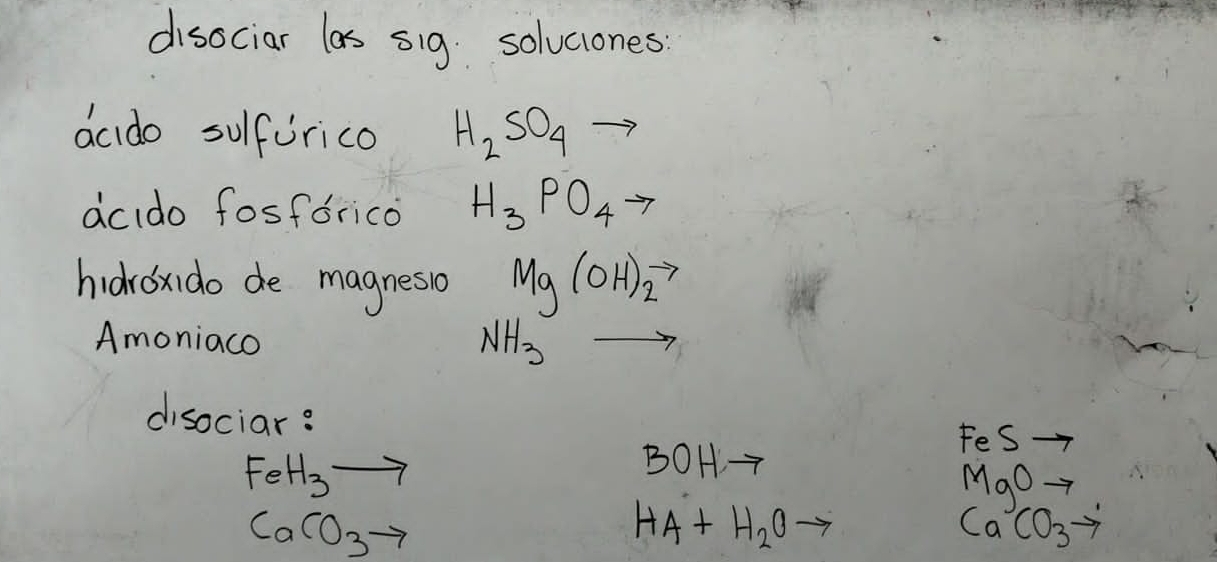 disociar las sig. soluciones:
ácido sulfúrico H₂SO₄ →
ácido fosfórico H₃PO₄ →
hidróxido de magnesio Mg(OH)₂ →
Amoniaco NH₃ →
disociar:
FeH₃ →
CaCO₃ →
BOH →
HA + H₂O →
FeS →
MgO →
CaCO₃ →